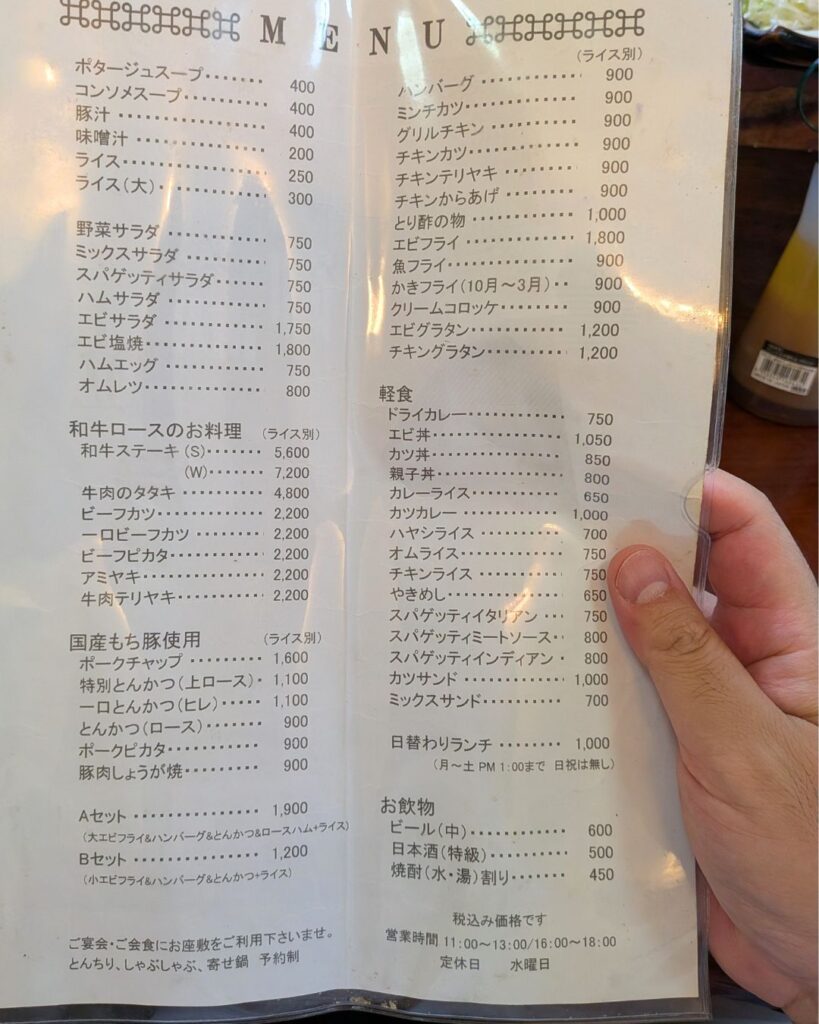 MENU
ポタージュスープ・・・・・・・ 400
コンソメスープ・・・・・・・・・・ 400
豚汁 ・・・・・・・・・・・・・・・・ 400
味噌汁 ・・・・・・・・・・・・・・ 200
ライス・・・・・・・・・・・・・・・・ 250
ライス(大)・・・・・・・・・・・・ 300
野菜サラダ ・・・・・・・・・・・ 750
ミックスサラダ ・・・・・・・・・ 750
スパゲッティサラダ・・・・・・ 750
ハムサラダ ・・・・・・・・・・・ 750
エビサラダ ・・・・・・・・・・・ 1,750
エビ塩焼・・・・・・・・・・・・・ 1,800
ハムエッグ ・・・・・・・・・・・ 750
オムレツ・・・・・・・・・・・・・ 800
和牛ロースのお料理 (ライス別)
和牛ステーキ(S)・・・・・・・ 5,600
(W)・・・・・・・ 7,200
牛肉のタタキ ・・・・・・・・・ 4,800
ビーフカツ・・・・・・・・・・・・ 2,200
一口ビーフカツ ・・・・・・・・ 2,200
ビーフピカタ・・・・・・・・・・・ 2,200
アミヤキ・・・・・・・・・・・・・・ 2,200
牛肉テリヤキ・・・・・・・・・・ 2,200
国産もち豚使用 (ライス別)
ポークチャップ ・・・・・・・・・ 1,600
特別とんかつ(上ロース)・ 1,100
一口とんかつ(ヒレ)・・・・・ 1,100
とんかつ(ロース)・・・・・・・ 900
ポークピカタ・・・・・・・・・・・ 900
豚肉しょうが焼・・・・・・・・・ 900
Aセット ・・・・・・・・・・・・・・ 1,900
(大エビフライ&ハンバーグ&とんかつ&ロースハム+ライス)
Bセット ・・・・・・・・・・・・・・ 1,200
(小エビフライ&ハンバーグ&とんかつ+ライス)
ご宴会・ご会食にお座敷をご利用下さいませ。
とんちり、しゃぶしゃぶ、寄せ鍋 予約制
(ライス別)
ハンバーグ ・・・・・・・・・・・ 900
ミンチカツ・・・・・・・・・・・・ 900
グリルチキン ・・・・・・・・・ 900
チキンカツ・・・・・・・・・・・・ 900
チキンテリヤキ ・・・・・・・・ 900
チキンからあげ ・・・・・・・・ 900
とり酢の物 ・・・・・・・・・・・ 1,000
エビフライ ・・・・・・・・・・・ 1,800
魚フライ・・・・・・・・・・・・・ 900
かきフライ(10月~3月)・・ 900
クリームコロッケ・・・・・・・ 900
エビグラタン・・・・・・・・・・ 1,200
チキングラタン・・・・・・・・ 1,200
軽食
ドライカレー・・・・・・・・・・・ 750
エビ丼・・・・・・・・・・・・・・・ 1,050
カツ丼・・・・・・・・・・・・・・・ 850
親子丼・・・・・・・・・・・・・・ 800
カレーライス・・・・・・・・・・ 650
カツカレー ・・・・・・・・・・・ 1,000
ハヤシライス ・・・・・・・・・ 700
オムライス・・・・・・・・・・・・ 750
チキンライス ・・・・・・・・・ 750
やきめし・・・・・・・・・・・・・ 650
スパゲッティイタリアン ・・・ 750
スパゲッティミートソース・・ 800
スパゲッティインディアン ・ 800
カツサンド・・・・・・・・・・・・ 1,000
ミックスサンド・・・・・・・・・ 700
日替わりランチ ・・・・・・・・ 1,000
(月~土 PM 1:00まで 日祝は無し)
お飲物
ビール(中)・・・・・・・・・・・ 600
日本酒(特級)・・・・・・・・・ 500
焼酎(水・湯)割り・・・・・・・ 450
税込み価格です
営業時間 11:00~13:00/16:00~18:00
定休日 水曜日